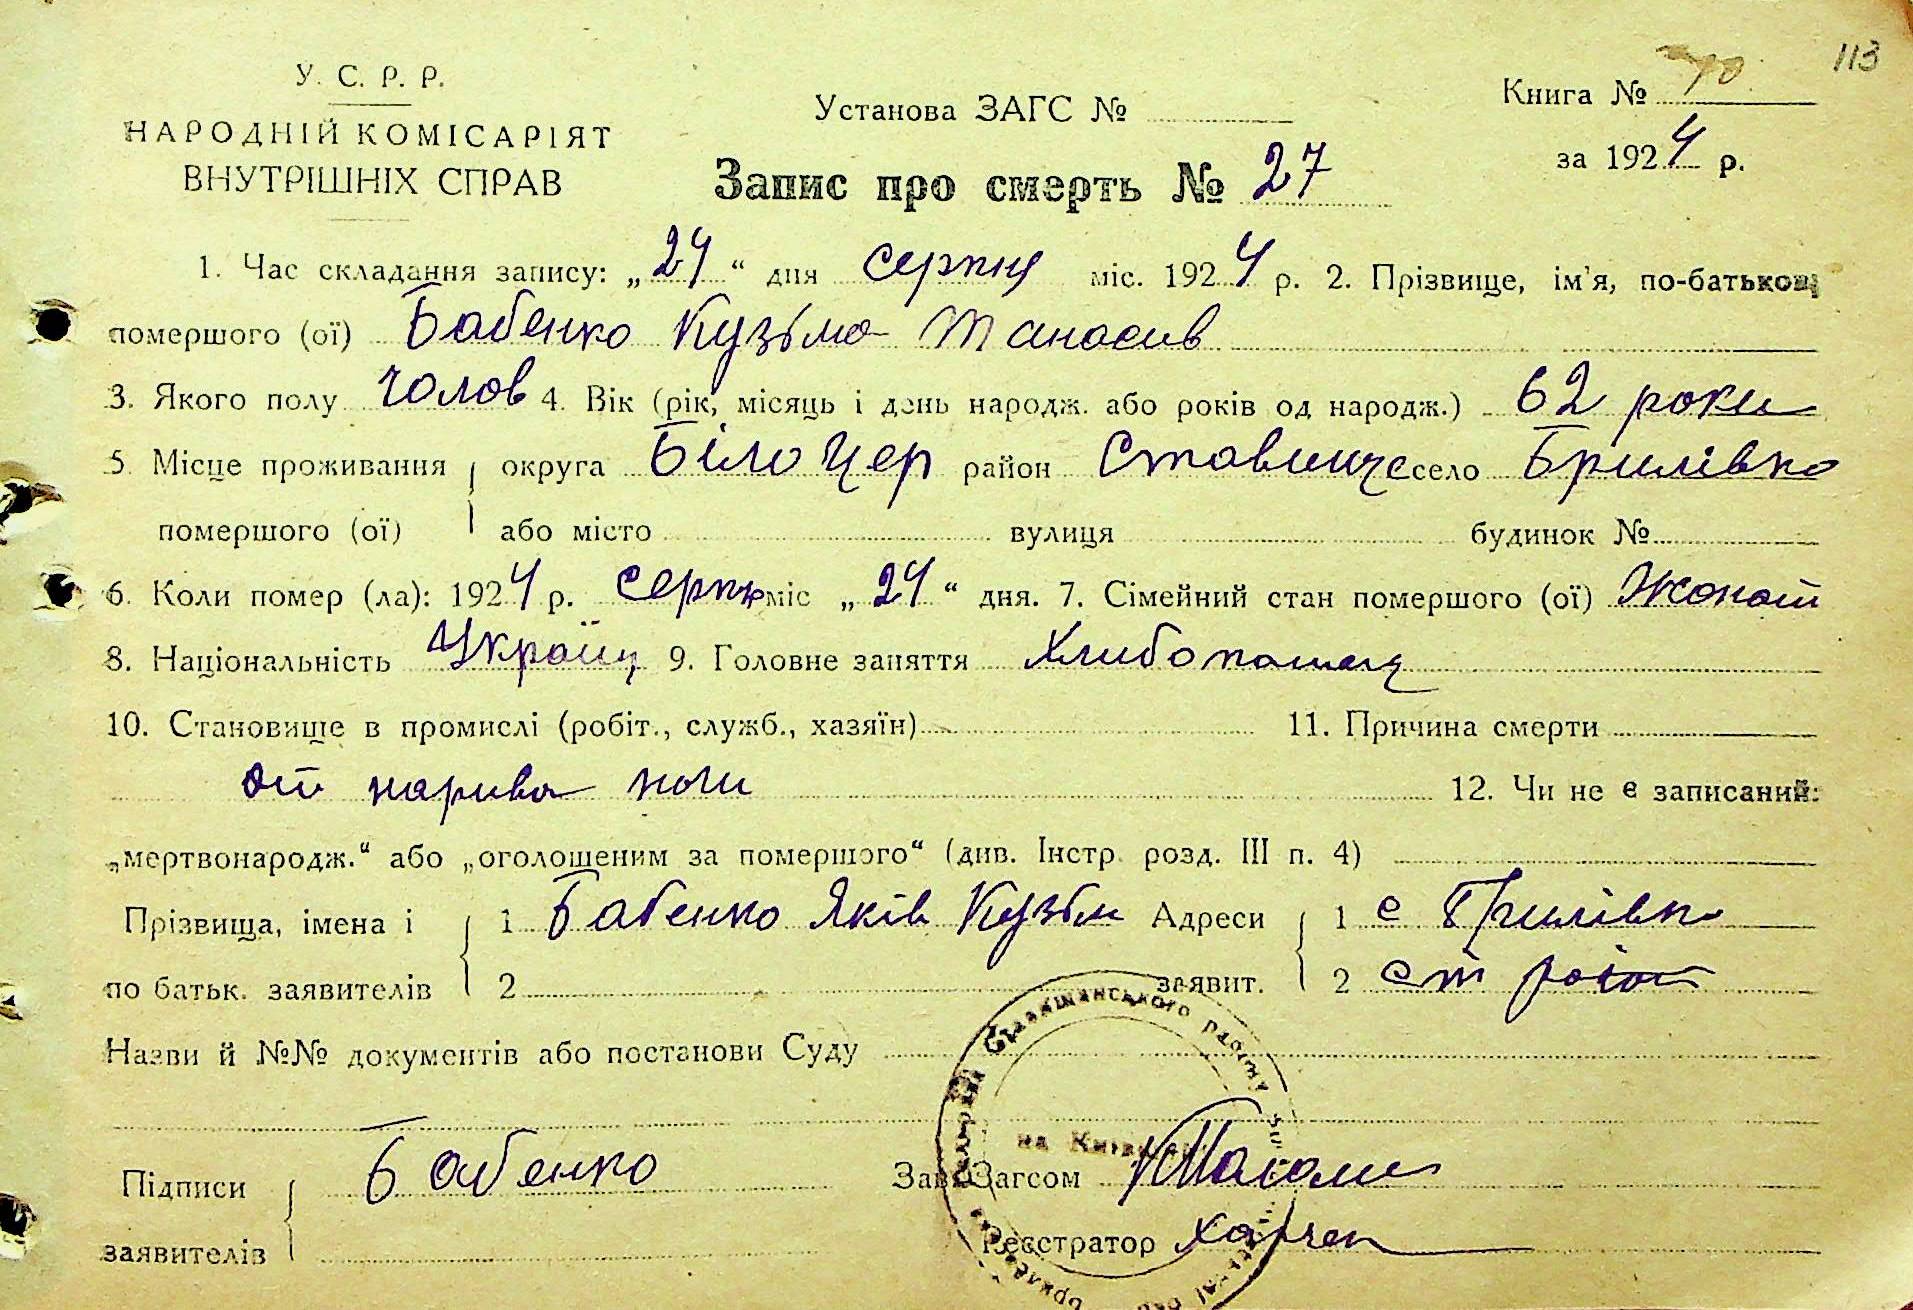 113
У. С. Р. Р.
НАРОДНІЙ КОМІСАРІЯТ
ВНУТРІШНІХ СПРАВ
Установа ЗАГС №
Запис про смерть № 27
Книга № 70
за 1924 р.
1. Час складання запису: „24“ дня серпня міс. 1924 р. 2. Прізвище, ім'я, по-батькові
помершого (ої) Бабенко Кузьма Танасив
3. Якого полу чолов 4. Вік (рік, місяць і день народж. або років од народж.) 62 роки
5. Місце проживання округа Білоцер район Ставище село Брилівка
помершого (ої) або місто вулиця будинок №
6. Коли помер (ла): 1924 р. серпня міс „24“ дня. 7. Сімейний стан помершого (ої) Жонат
8. Національність Україн 9. Головне заняття Хлибопашец
10. Становище в промислі (робіт., служб., хазяїн) 11. Причина смерти
от нарива ноги 12. Чи не є записаний:
„мертвонародж.“ або „оголошеним за помершого“ (див. Інстр. розд. III п. 4)
Прізвища, імена і 1 Бабенко Яків Кузьм Адреси 1 с Брилівка
по батьк. заявителів 2 заявит. 2 ст район
Назви й №№ документів або постанови Суду
Ставищанського району
на Київщині
Підписи Бабенко Зав. Загсом
заявителів Реєстратор Харчен